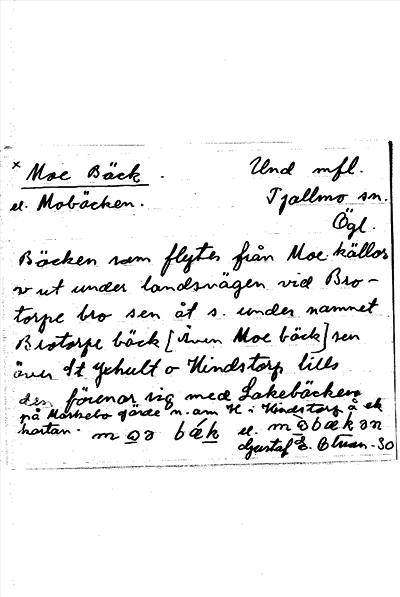 × Moe Bäck. Und mfl.
el. Mobäcken. Tjällmo sn.
Ögl.
Bäcken som flytes från Moe källor
v ut under landsvägen vid Bro-
torpe bro sen åt s. under namnet
Brotorpe bäck [även Moe bäck] sen
över St o Hindstorp tills
den förenar sig med Lakebäcken
på gärde n. om H i Hindstorp å ek
kartan. el.
Gustaf E. -30